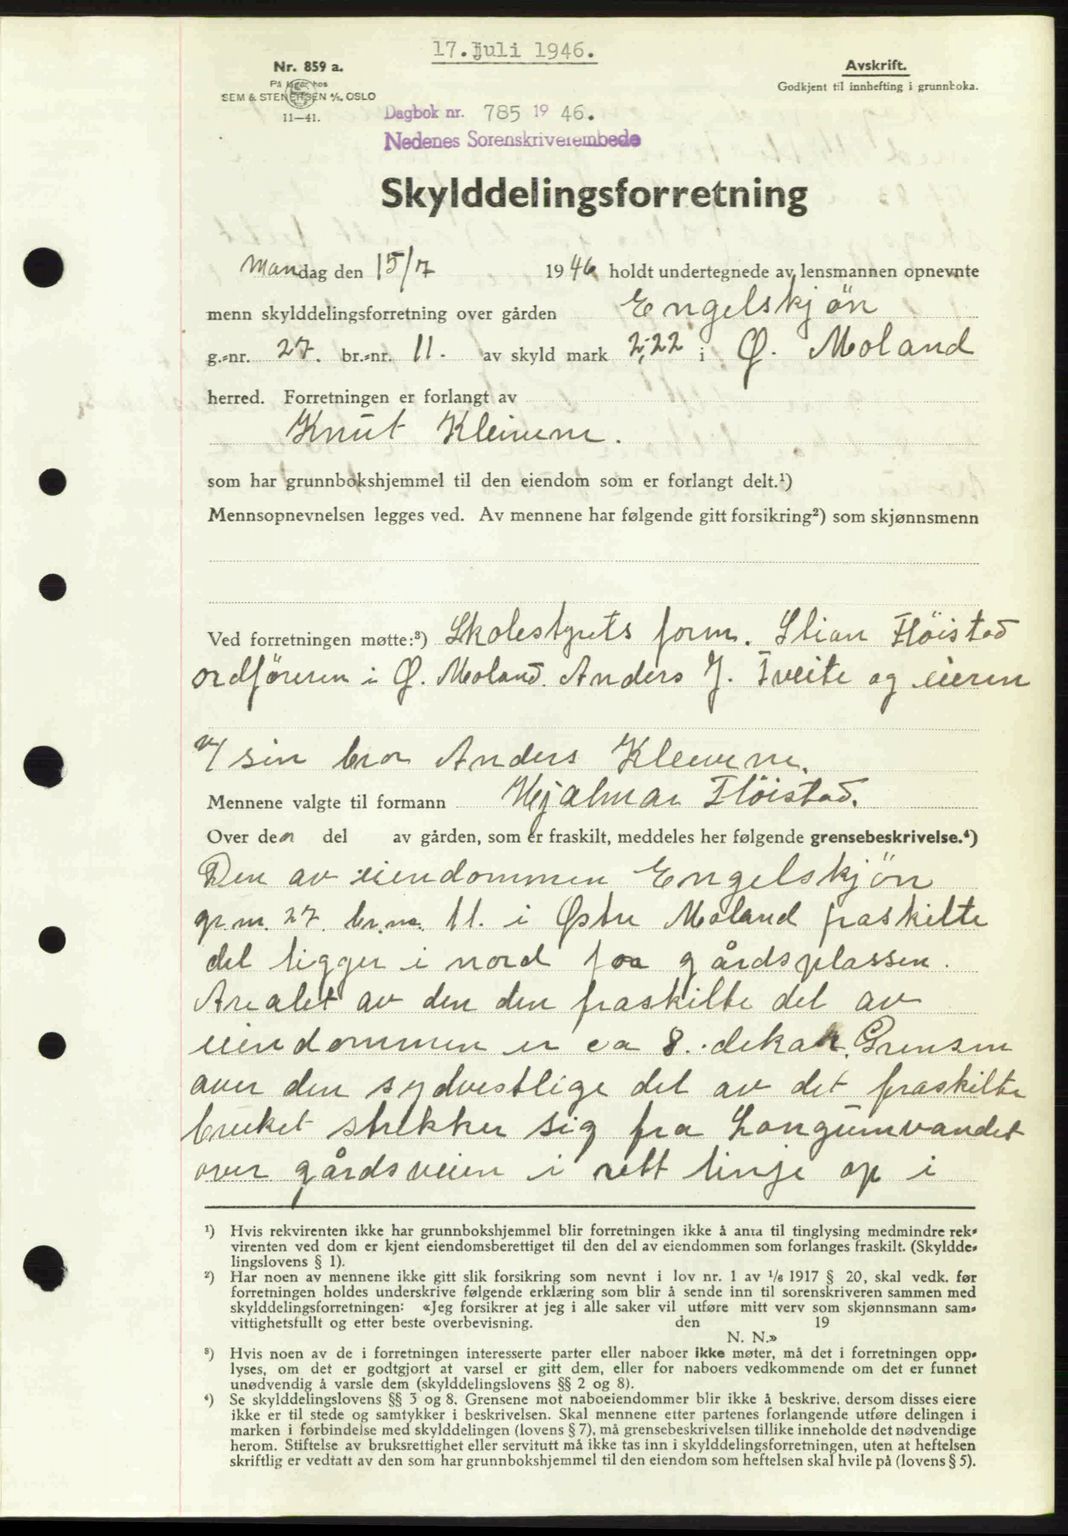 17. Juli 1946.
Nr. 859 a.
På lager hos
SEM & STENERSEN A/S, OSLO
11—41.
Avskrift.
Godkjent til innhefting i grunnboka.
Dagbok nr. 785 1946.
Nedenes Sorenskriverembede
Skylddelingsforretning
Mandag den 15/7 1946 holdt undertegnede av lensmannen opnevnte
menn skylddelingsforretning over gården Engelskjön
g.-nr. 27. br.-nr. 11. av skyld mark 2,22 i Ø. Moland
herred. Forretningen er forlangt av
Knut Kleivene.
som har grunnbokshjemmel til den eiendom som er forlangt delt.¹)
Mennsopnevnelsen legges ved. Av mennene har følgende gitt forsikring²) som skjønnsmenn
Ved forretningen møtte:³) Skolestyrets form. Stian Flöistad
ordføreren i Ø. Moland. Anders J. Tveite og eieren
v/ sin bror Anders Kleivene.
Mennene valgte til formann Hjalmar Flöistad.
Over den del av gården, som er fraskilt, meddeles her følgende grensebeskrivelse.⁴)
Den av eiendommen Engelskjön
gr.nr. 27. br.nr. 11. i Østre Moland fraskilte
del ligger i nord for gårdsplassen.
Arealet av den den fraskilte del av
eiendommen er ca 8. dekar. Grensen
over den sydvestlige del av det fraskilte
bruket strekker sig fra Longumvandet
over gårdsveien i rett linje op i
¹) Hvis rekvirenten ikke har grunnbokshjemmel blir forretningen ikke å anta til tinglysing medmindre rek-
virenten ved dom er kjent eiendomsberettiget til den del av eiendommen som forlanges fraskilt. (Skyldde-
lingslovens § 1).
²) Har noen av mennene ikke gitt slik forsikring som nevnt i lov nr. 1 av 1/6 1917 § 20, skal vedk. før
forretningen holdes underskrive følgende erklæring som blir å sende inn til sorenskriveren sammen med
skylddelingsforretningen: «Jeg forsikrer at jeg i alle saker vil utføre mitt verv som skjønnsmann sam-
vittighetsfullt og etter beste overbevisning. den 19
N. N.»
³) Hvis noen av de i forretningen interesserte parter eller naboer ikke møter, må det i forretningen opp-
lyses, om det er godtgjort at varsel er gitt dem, eller for naboers vedkommende om det er funnet
unødvendig å varsle dem (skylddelingslovens §§ 2 og 8).
⁴) Se skylddelingslovens §§ 3 og 8. Grensene mot naboeiendommer blir ikke å beskrive, dersom disses eiere
ikke er til stede og samtykker i beskrivelsen. Skal mennene etter partenes forlangende utføre delingen i
marken i forbindelse med skylddelingen (lovens § 7), må grensebeskrivelsen tillike inneholde det nødvendige
herom. Stiftelse av bruksrettighet eller servitutt må ikke tas inn i skylddelingsforretningen, uten at heftelsen
skriftlig er vedtatt av den som har grunnbokshjemmel til den eiendom som heftelsen skal hvile på (lovens § 5).